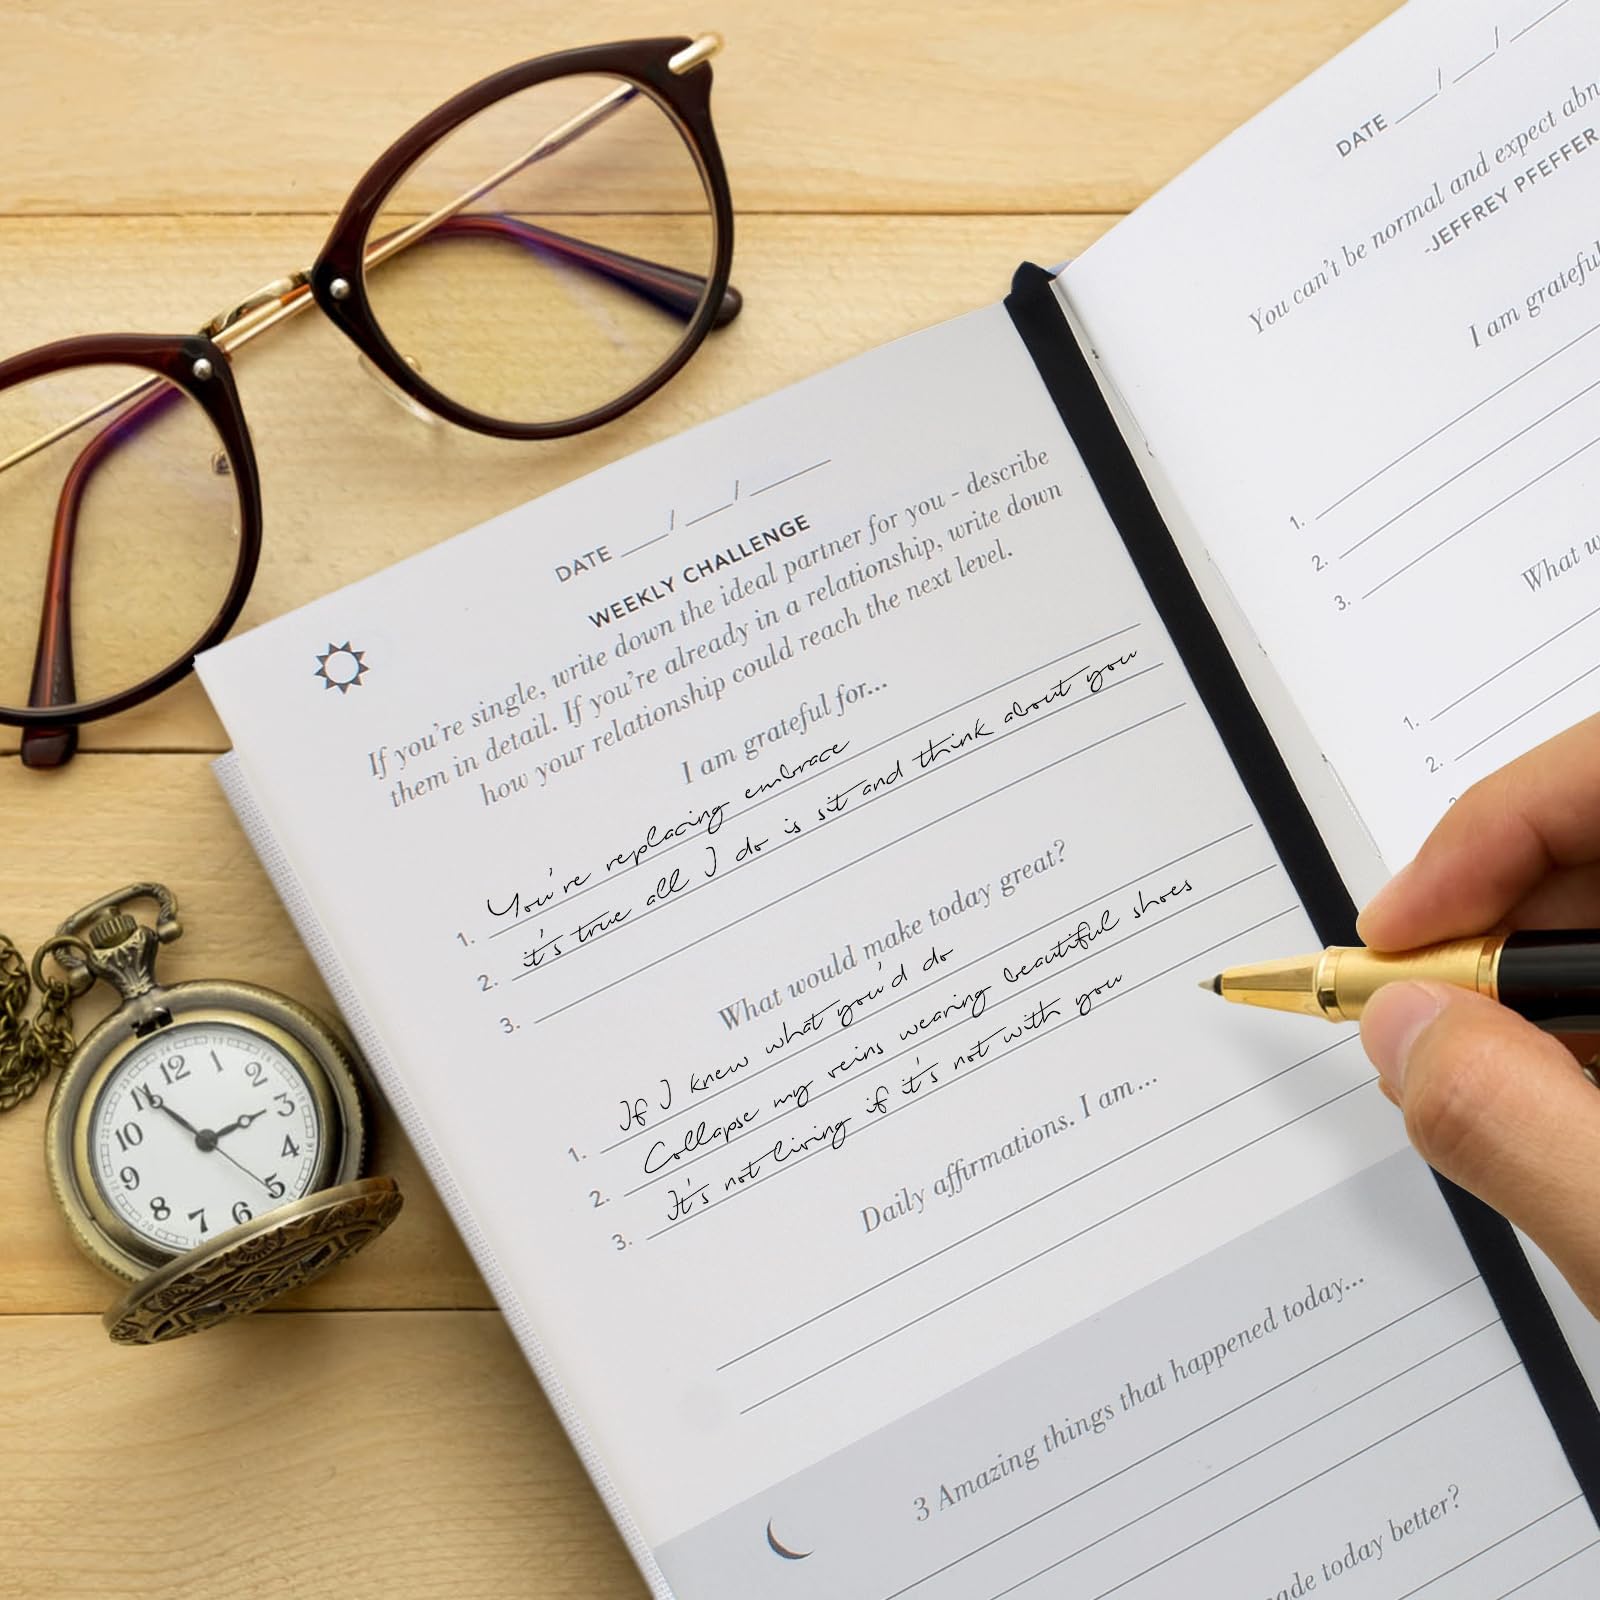 DATE ___/___/____
WEEKLY CHALLENGE
If you're single, write down the ideal partner for you - describe
them in detail. If you're already in a relationship, write down
how your relationship could reach the next level.
I am grateful for...
1. You're replacing embrace
2. it's true all I do is sit and think about you
3.
What would make today great?
1. If I knew what you'd do
2. Collapse my veins wearing beautiful shoes
3. It's not living if it's not with you
Daily affirmations. I am...
3 Amazing things that happened today...
ade today better?
DATE ___/___/
You can't be normal and expect abn
-JEFFREY PFEFFER
I am grateful
1.
2.
3.
What w
1.
2.
12
1
2
3
4
5
6
7
8
9
10